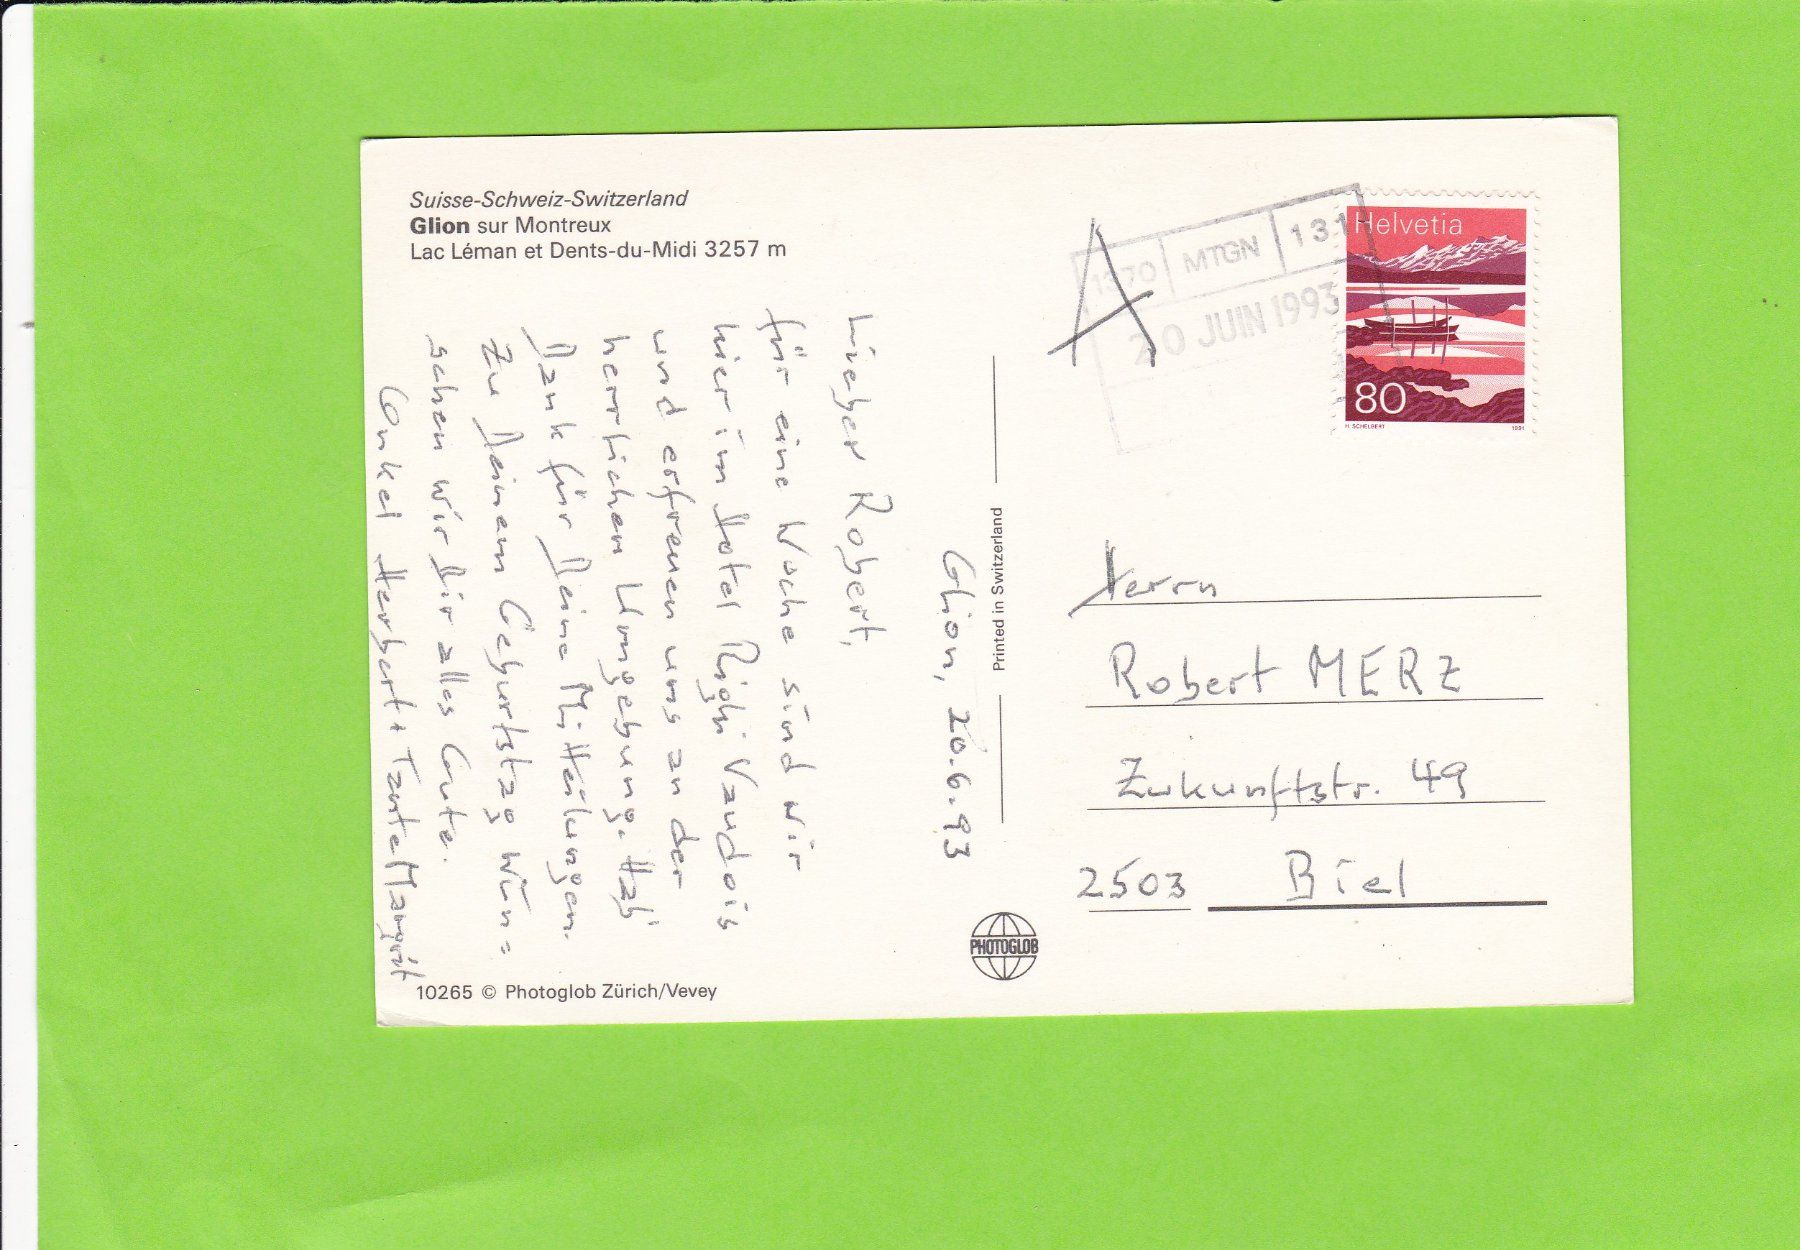 Suisse-Schweiz-Switzerland
Glion sur Montreux
Lac Léman et Dents-du-Midi 3257 m
Glion, 20.6.93
Lieber Robert,
für eine Woche sind wir
hier im Hotel Righi Vaudois
und erfreuen uns an der
herrlichen Umgebung. Hab'
Dank für Deine Mitteilungen.
Zu Deinem Geburtstag wün=
schen wir Dir alles Gute.
Onkel Herbert + Tante Margrit
10265 © Photoglob Zürich/Vevey
Printed in Switzerland
PHOTOGLOB
A
1370 MTGN 131
20 JUIN 1993
Helvetia
80
H. SCHELBERT 1991
Herrn
Robert MERZ
Zukunftstr. 49
2503 Biel